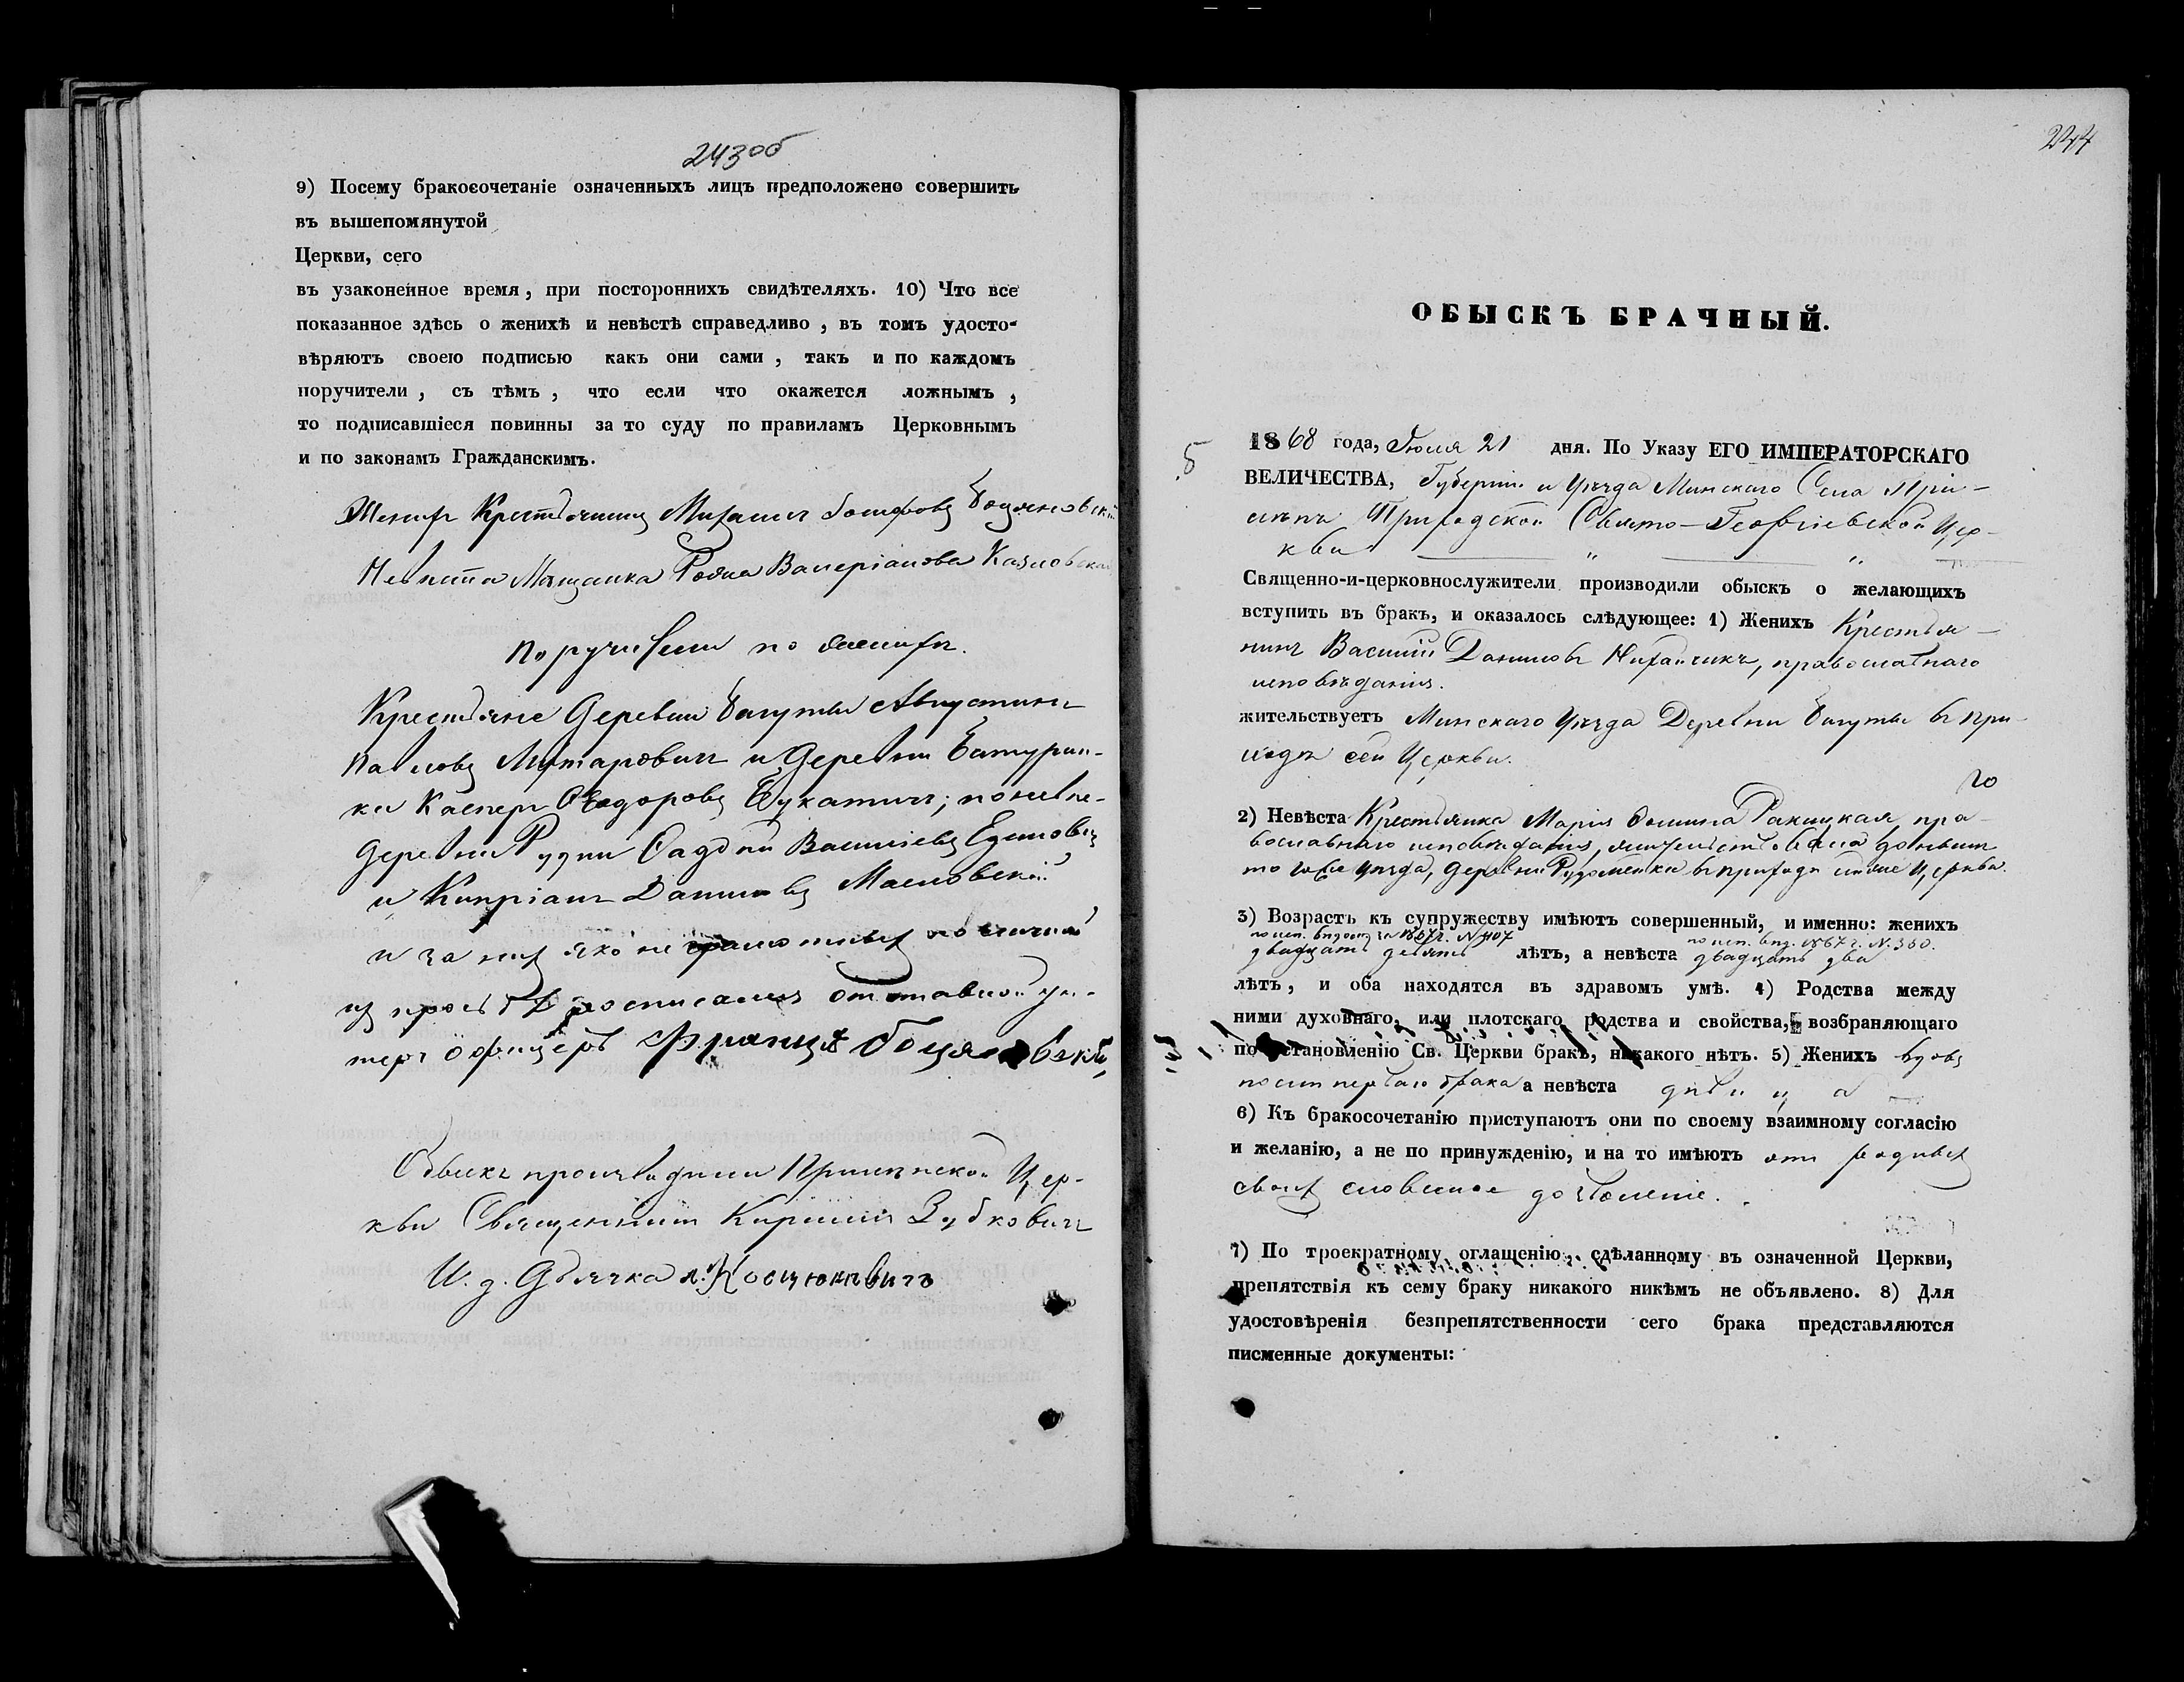 243об
9) Посему бракосочетаніе означенныхъ лицъ предположено совершить
въ вышепомянутой
Церкви, сего
въ узаконенное время, при постороннихъ свидѣтеляхъ. 10) Что все
показанное здѣсь о женихѣ и невѣстѣ справедливо, въ томъ удосто-
вѣряютъ своею подписью какъ они сами, такъ и по каждомъ
поручители, съ тѣмъ, что если что окажется ложнымъ,
то подписавшіеся повинны за то суду по правиламъ Церковнымъ
и по законамъ Гражданскимъ.
Женихъ Крестьянинъ Михаилъ
Невѣста Мѣщанка Валеріанова Казловская
Поручители по женихѣ
Крестьяне Деревни Августинъ
Павловъ и Деревни Батурин-
ки Касперъ Ѳеодоровъ невѣ-
Деревни Рудни Василіевъ
и Кипріанъ Даниловъ Масловскій
и за нихъ яко неграмотныхъ по личной
ихъ прозьбѣ росписался отставной ун-
теръ офицеръ Францъ
Обыскъ производили Прилѣпской Цер-
кви Священникъ Кириллъ Зубковичъ
И. д. Дьячка Л. Костюкевичъ
244
ОБЫСКЪ БРАЧНЫЙ.
5
1868 года, Іюля 21 дня. По Указу ЕГО ИМПЕРАТОРСКАГО
ВЕЛИЧЕСТВА, Губерніи и Уѣзда Минскаго Села При-
лѣпъ Приходской Свято-Георгіевской Цер-
кви
Священно-и-церковнослужители производили обыскъ о желающихъ
вступить въ бракъ, и оказалось слѣдующее: 1) Женихъ Крестья-
нинъ Василій Даниловъ православнаго
исповѣданія.
жительствуетъ Минскаго Уѣзда Деревни въ При-
ходѣ сей Церкви.
го
2) Невѣста Крестьянка Марія Ракицкая, пра-
вославнаго исповѣданія, жительствовала донынѣ
того же уѣзда, деревни въ приходѣ Церкви.
3) Возрастъ къ супружеству имѣютъ совершенный, и именно: женихъ
по исп. вѣдом. за 1867 г. N 107 по исп. вѣд. 1867 г. N. 360.
двадцать девять лѣтъ, а невѣста двадцать два
лѣтъ, и оба находятся въ здравомъ умѣ. 4) Родства между
ними духовнаго, или плотскаго родства и свойства, возбраняющаго
по установленію Св. Церкви бракъ, никакого нѣтъ. 5) Женихъ вдовъ
послѣ перваго брака а невѣста дѣвица
6) Къ бракосочетанію приступаютъ они по своему взаимному согласію
и желанію, а не по принужденію, и на то имѣютъ отъ родныхъ
своихъ словесное дозволеніе.
7) По троекратному оглащенію, сдѣланному въ означенной Церкви,
препятствія къ сему браку никакого никѣмъ не объявлено. 8) Для
удостовѣренія безпрепятственности сего брака представляются
писменные документы: